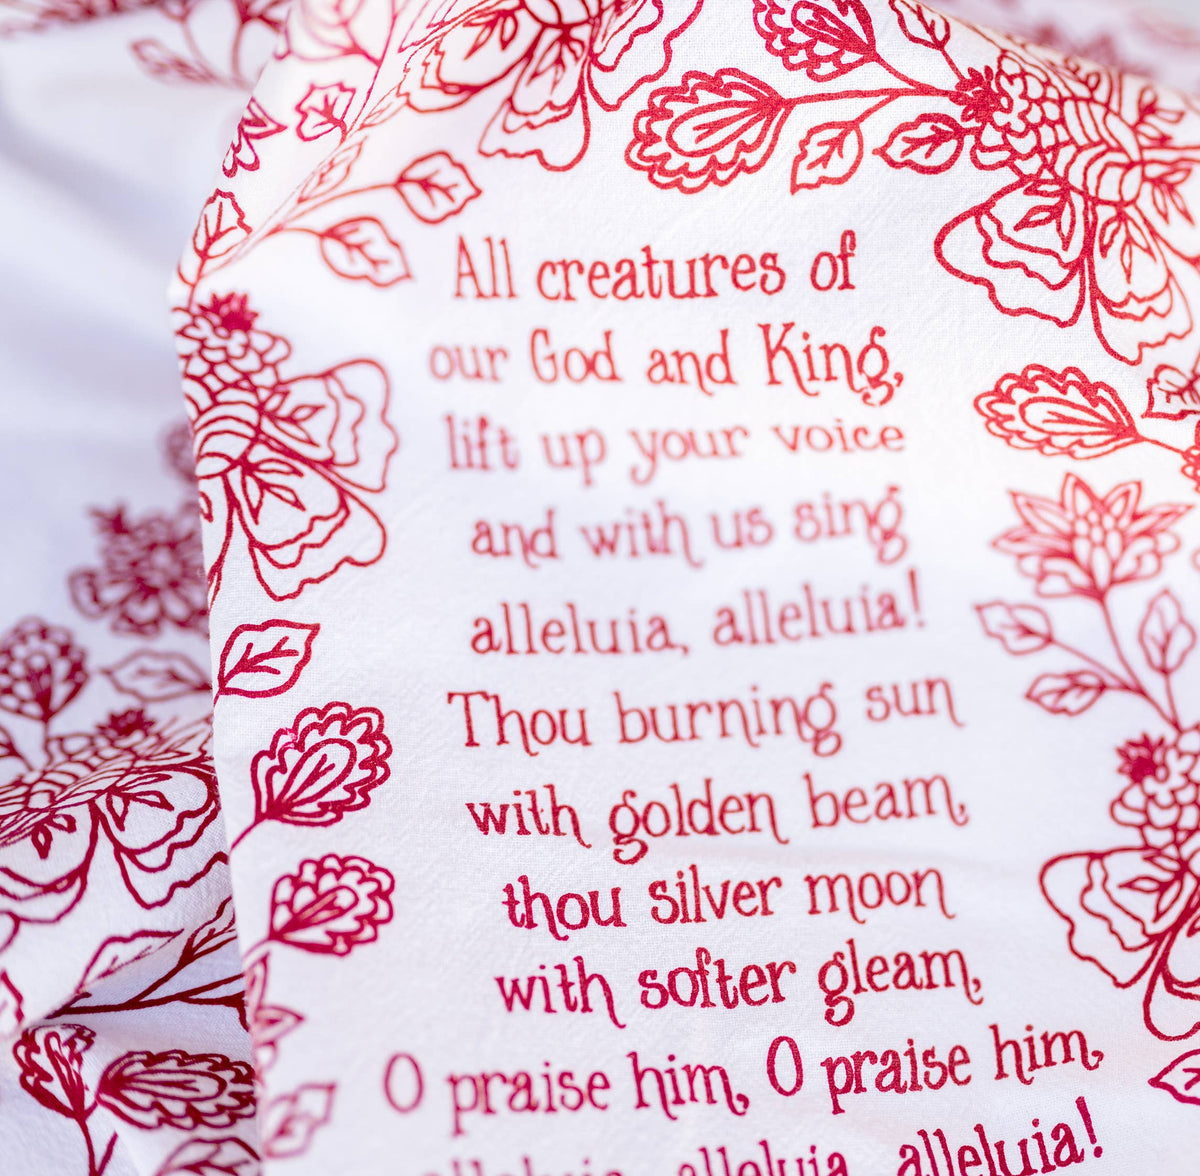 All creatures of
our God and King,
lift up your voice
and with us sing
alleluia, alleluia!
Thou burning sun
with golden beam,
thou silver moon
with softer gleam,
O praise him, O praise him,
alleluia, alleluia, alleluia!